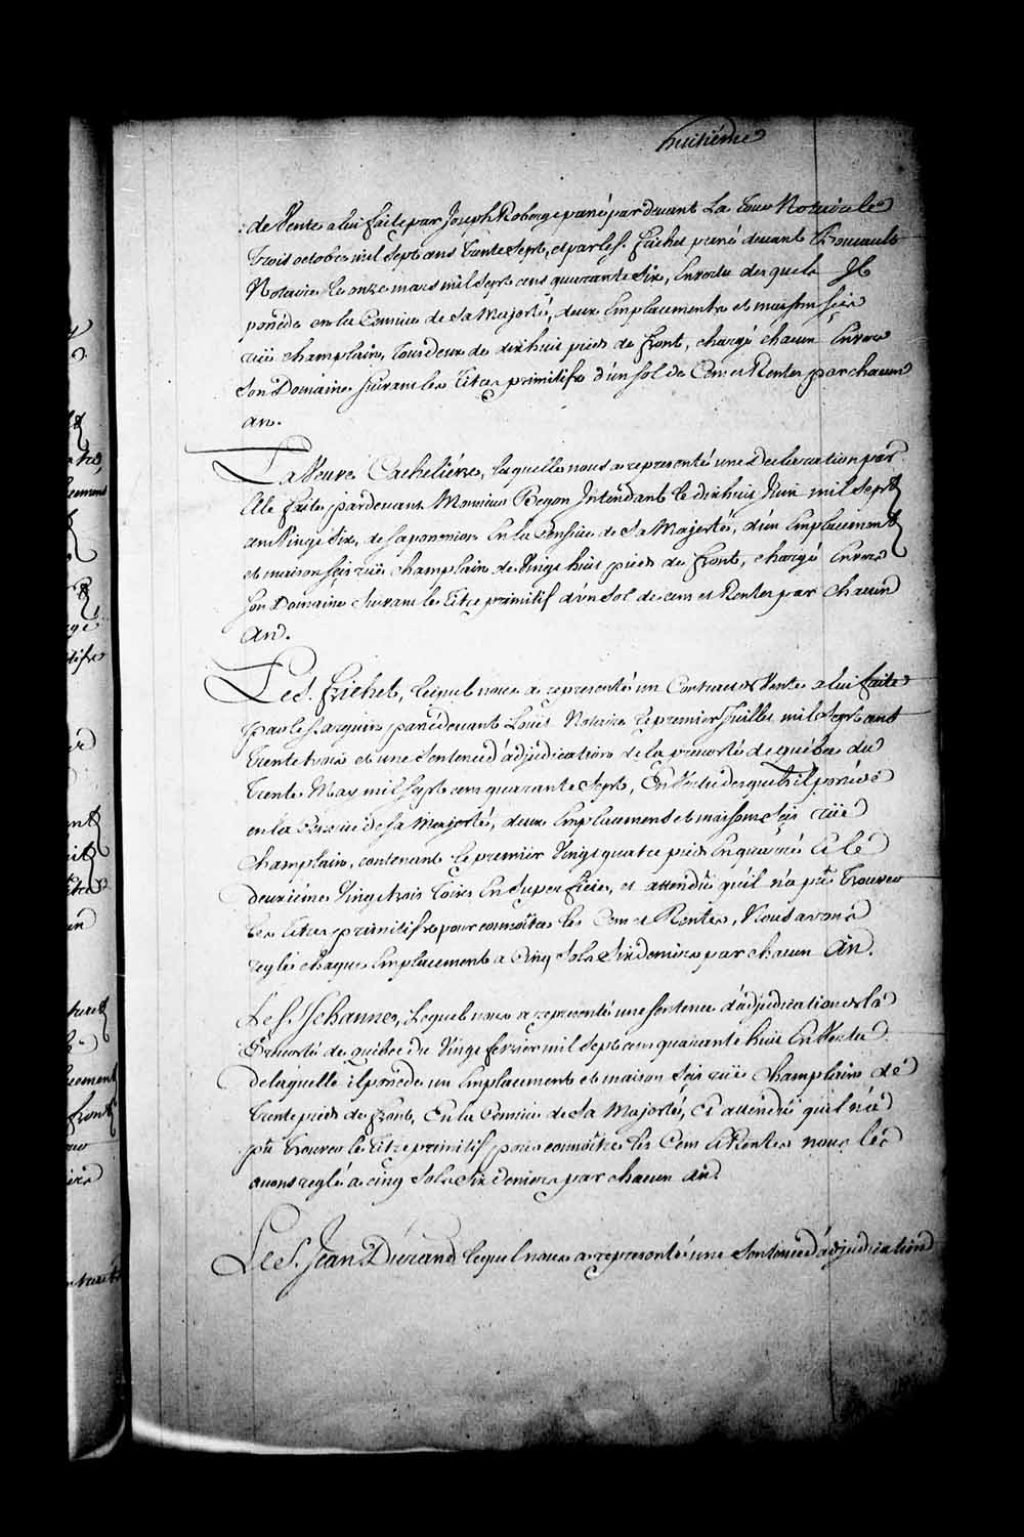 huitiéme
de Vente a lui faite par Joseph Roberge passé par devant La Tour Notaire le
trois octobre mil Sept cens trente Sept, et par les. frichet passé devant Boucault
Notaire le onze mars mil Sept cens quarante Six, En vertu desquels Il
possede en la Censive de Sa Majesté, deux Emplacements et maison Seis
rüe champlain, tous deux de dixhuit pieds de front, chargé chacun Envers
Son Domaine Suivant les titres primitifs d'un Sol de Cens et Rentes par chacun
an.
La Veuve Cacheliévre, laquelle nous a representé une Declaration par
Elle faite pardevant Monsieur Begon Intendant le dixhuit Juin mil Sept
cens Vingt Six, de Sa possession En la Censive de Sa Majesté, d'un Emplacement
et maison Seis rüe champlain de Vingt huit pieds de front, chargé Envers
Son Domaine Suivant le titre primitif d'un Sol de cens et Rentes par chacun
an.
Le S. frichet, lequel nous a representé un Contract de Vente a lui faite
par le S. passé devant Loüis Notaire le premier Juillet mil Sept cent
trente trois et une Sentence d'adjudication de la prevosté de quebec du
trente May mil Sept cens quarante Sept, En Vertu desquels il possede
en la Censive de Sa Majesté, deux Emplacements et maisons Seis rüe
Champlain, contenant le premier Vingt quatre pieds En quarré et le
deuxiéme Vingt trois toises En Superficie, et attendu qu'il n'a pû trouver
les titres primitifs pour connoître les Cens et Rentes, Nous avons
reglés chaque Emplacement a Cinq Sols Six deniers par chacun An.
Le S. Jehanne, lequel nous a representé une Sentence d'adjudication de la
Prevosté de quebec du Vingt fevrier mil Sept cens quarante huit En Vertu
de laquelle il possede un Emplacement et maison Seis rüe Champlain de
trente pieds de front, En la Censive de Sa Majesté, Et attendu qu'il n'a
pû trouver le titre primitif pour connoître les Cens et Rentes nous les
avons reglé a cinq Sols Six deniers par chacun an.
Le S. Jean Durand lequel nous a representé une Sentence d'adjudication